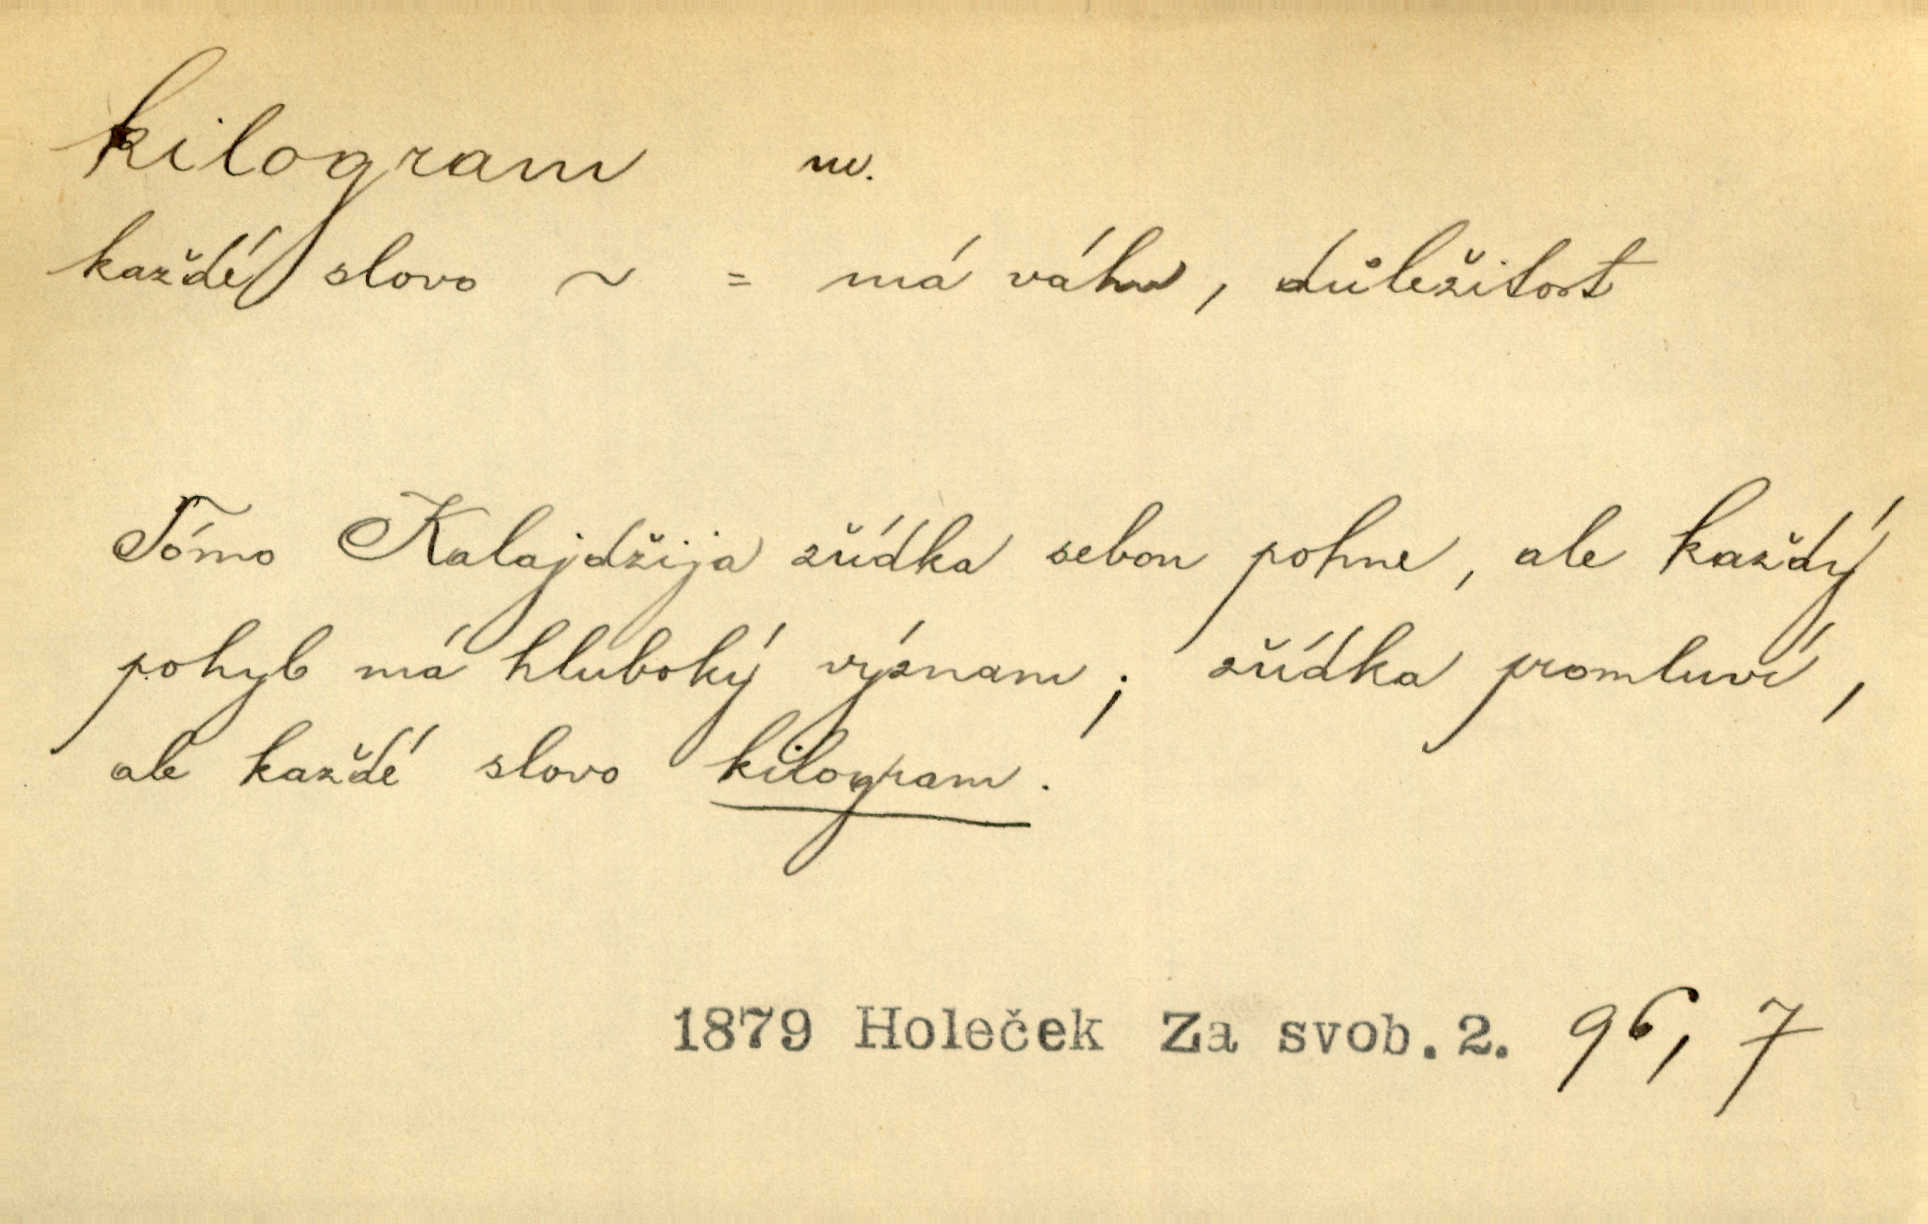 kilogram m.
každé slovo ~ = má váhu, důležitost
Tómo Kalajdžija zřídka sebou pohne, ale každý
pohyb má hluboký význam; zřídka promluví,
ale každé slovo kilogram.
1879 Holeček Za svob. 2. 96, 7